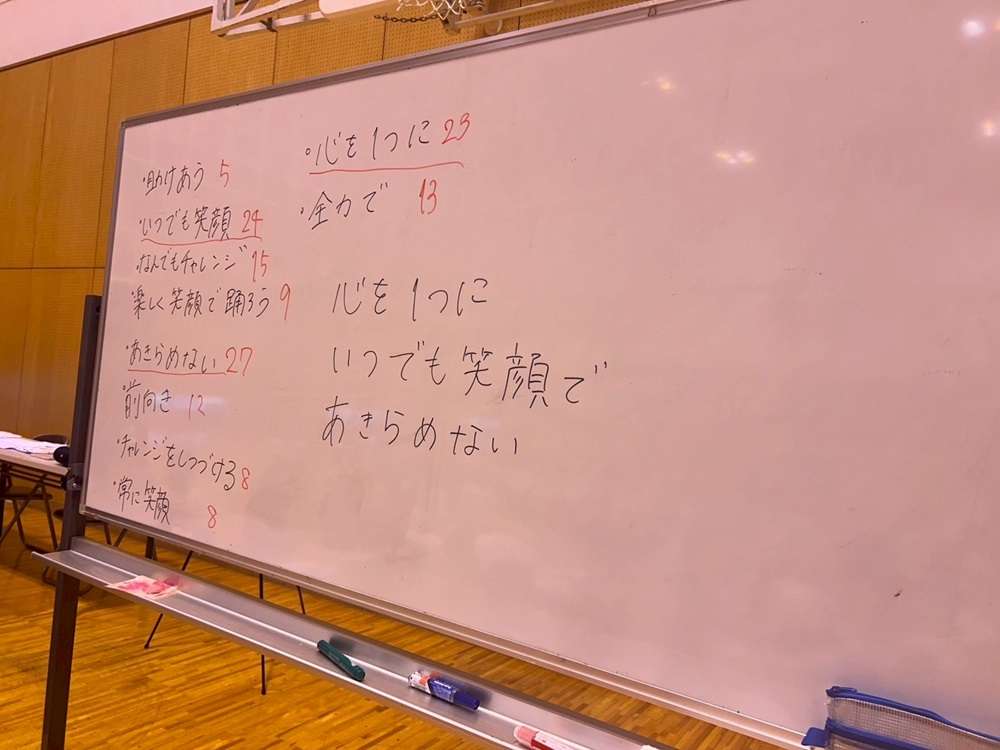 ・助けあう 5
・いつでも笑顔 24
・なんでもチャレンジ 15
・楽しく笑顔で踊ろう 9
・あきらめない 27
・前向き 12
・チャレンジをしつづける 8
・常に笑顔 8
・心を1つに 23
・全力で 13
心を1つに
いつでも笑顔で
あきらめない